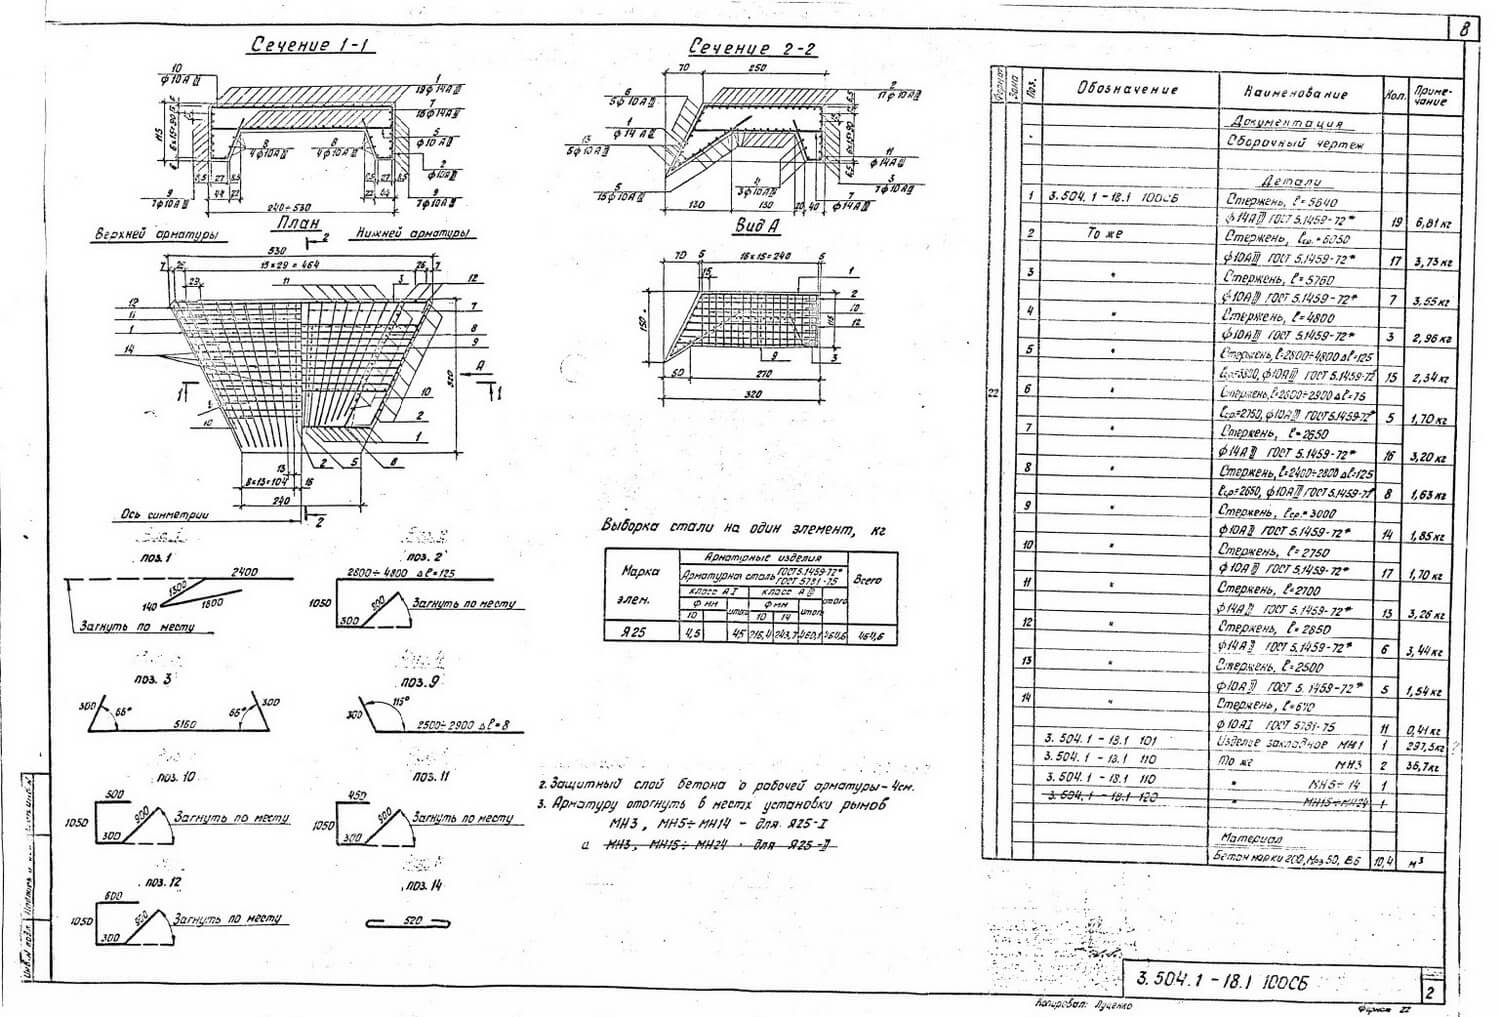 8
Сечение 1-1
10
ф10АIII
1
19ф14АIII
7
16ф14АIII
5
ф10АIII
2
ф10АIII
8
4ф10АIII
8
4ф10АIII
9
7ф10АIII
9
7ф10АIII
115
6×15=90
240÷530
Сечение 2-2
70
250
2
17ф10АIII
6
5ф10АIII
1
ф14АIII
13
5ф10АIII
5
15ф10АIII
4
3ф10АIII
11
ф14АIII
3
7ф10АIII
7
ф14АIII
6×15=90
130
130
20
40
План
Верхней арматуры
Нижней арматуры
2
530
7
26
15×29=464
26
7
29
11
3
12
12
11
1
14
7
8
9
10
2
1
320
А
1
1
10
2
5
8
13
8×13=104
16
240
Ось симметрии
2
Вид А
70
5
16×15=240
5
15
1
2
10
12
150
115
9
3
50
270
320
Выборка стали на один элемент, кг
Марка элем.
Арматурные изделия
Всего
Арматурная сталь ГОСТ 5.1459-72* ГОСТ 5781-75
класс АI
класс АIII
итого
ф мм
итого
ф мм
итого
10
10
14
Я25
4,5
4,5
216,4
243,7
460,1
464,6
464,6
поз. 1
2400
1300
140
1800
Загнуть по месту
поз. 2
2800÷4800 Δℓ=125
1050
900
300
Загнуть по месту
поз. 3
300
66°
5160
66°
300
поз. 9
300
115°
2500÷2900 Δℓ=8
поз. 10
500
1050
900
300
Загнуть по месту
поз. 11
450
1050
900
300
Загнуть по месту
поз. 12
600
1050
900
300
Загнуть по месту
поз. 14
520
2. Защитный слой бетона о рабочей арматуры-4см.
3. Арматуру отогнуть в местх установки рымов
МН3, МН5÷МН14 - для Я25-I
и МН3, МН15÷МН24 - для Я25-II
Формат
Зона
Поз.
Обозначение
Наименование
Кол.
Примечание
Документация
Сборочный чертеж
Детали
22
1 3.504.1-18.1 100СБ Стержень, ℓ=5640
ф14АIII ГОСТ 5.1459-72* 19 6,81кг
2 То же Стержень, ℓср.=6050
ф10АIII ГОСТ 5.1459-72* 17 3,73кг
3 " Стержень, ℓ=5760
ф10АIII ГОСТ 5.1459-72* 7 3,55кг
4 " Стержень, ℓ=4800
ф10АIII ГОСТ 5.1459-72* 3 2,96кг
5 " Стержень, ℓ=2800÷4800 Δℓ=125
ℓср=3800, ф10АIII ГОСТ 5.1459-72* 15 2,34кг
6 " Стержень, ℓ=2600÷2900 Δℓ=75
ℓср=2750, ф10АIII ГОСТ 5.1459-72* 5 1,70кг
7 " Стержень, ℓ=2650
ф14АIII ГОСТ 5.1459-72* 16 3,20кг
8 " Стержень, ℓ=2400÷2800 Δℓ=125
ℓср=2650, ф10АIII ГОСТ 5.1459-72* 8 1,63кг
9 " Стержень, ℓср.=3000
ф10АIII ГОСТ 5.1459-72* 14 1,85кг
10 " Стержень, ℓ=2750
ф10АIII ГОСТ 5.1459-72* 17 1,70кг
11 " Стержень, ℓ=2700
ф14АIII ГОСТ 5.1459-72* 13 3,26кг
12 " Стержень, ℓ=2850
ф14АIII ГОСТ 5.1459-72* 6 3,44кг
13 " Стержень, ℓ=2500
ф10АIII ГОСТ 5.1459-72* 5 1,54кг
14 " Стержень, ℓ=670
ф10АI ГОСТ 5781-75 11 0,41кг
3.504.1-18.1 101 Изделие закладное МН1 1 297,5кг
3.504.1-18.1 110 То же МН3 2 36,7кг
3.504.1-18.1 110 " МН5÷14 1
3.504.1-18.1 120 " МН15÷МН24 1
Материал
Бетон марки 200, Мрз 50, В6 10,4 м³
3.504.1-18.1 100СБ
2
Копировал: Луценко
Формат 22
Инв.N подл.